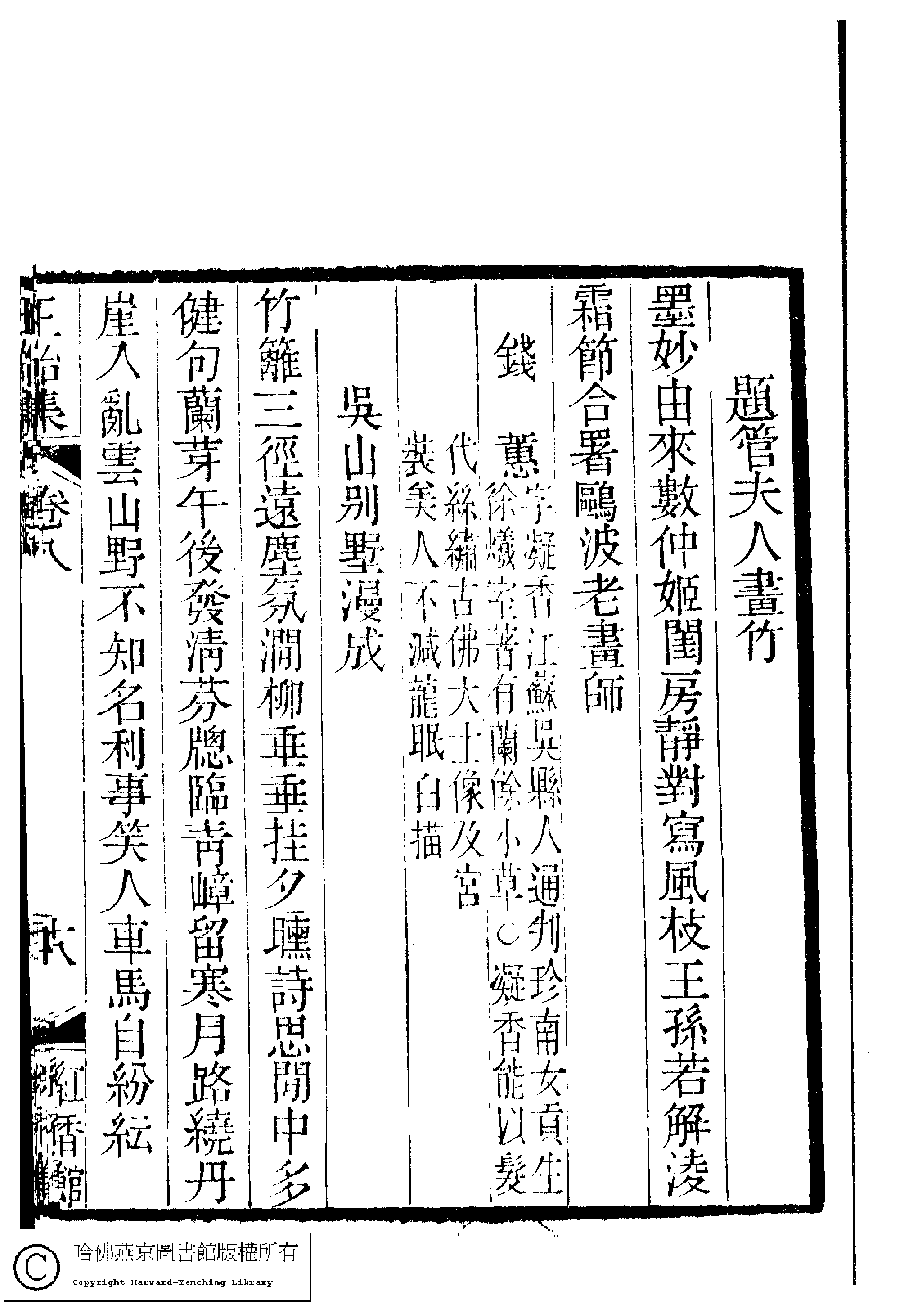 題管夫人畫竹
墨妙由來數仲姬閨房靜對寫風枝王孫若解淩
霜節合署鷗波老畫師
錢蕙字凝香江蘇吳縣人通判珍南女貢生
徐爔室著有蘭餘小草○凝香能以髮
代絲繡古佛大士像及宮
裝美人不減龍眠白描
吳山别墅漫成
竹籬三徑遠塵氛澗柳垂垂挂夕曛詩思閒中多
健句蘭芽午後發清芬牕臨青嶂留寒月路繞丹
崖入亂雲山野不知名利事笑人車馬自紛紜
正始集
卷八
十八
紅香館
哈佛燕京圖書館版權所有
Copyright Harvard-Yenching Library